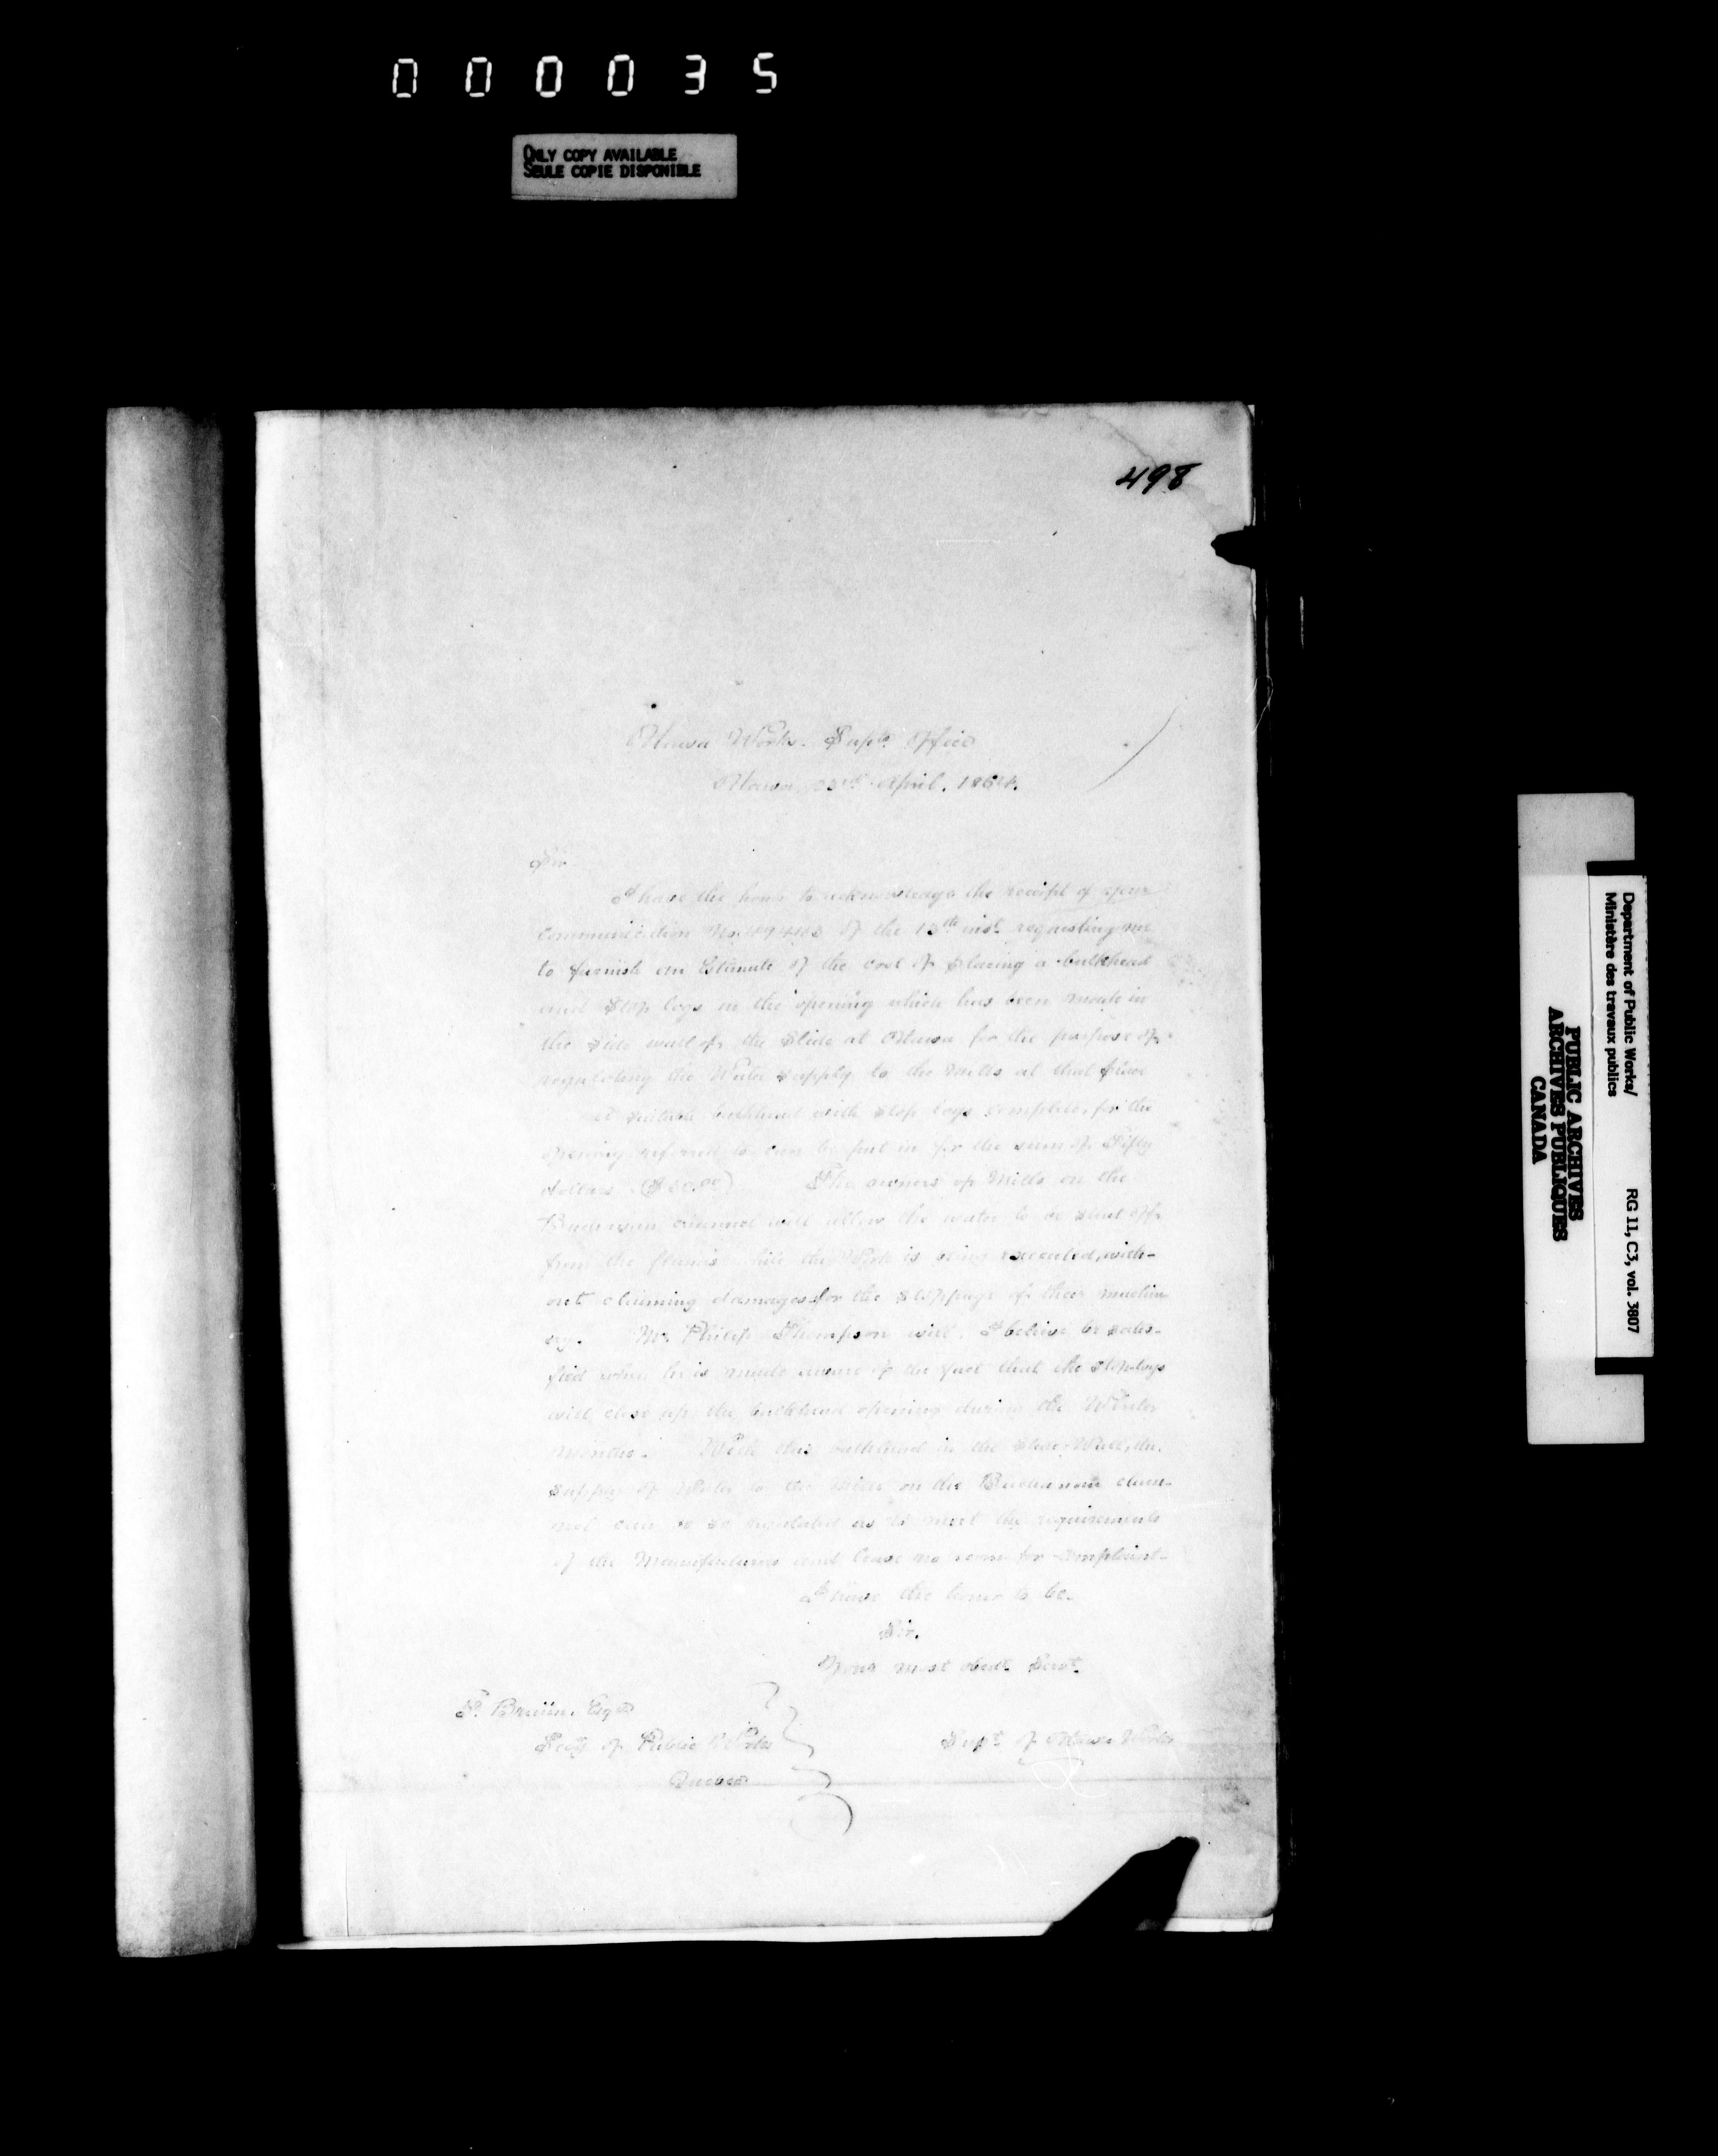 000035
ONLY COPY AVAILABLE
SEULE COPIE DISPONIBLE
498
Ottawa Works. Supts. Office
Ottawa, April. 1864.
Sir
I have the honor to acknowledge the receipt of your
communication No. of the 13th inst. requesting me
to furnish an Estimate of the cost of placing a bulkhead
and Stop logs in the opening which has been made in
the Side wall of the Slide at Ottawa for the purpose of
regulating the Water supply to the Mills at that place
A suitable bulkhead with stop logs complete, for the
opening referred to can be put in for the sum of Fifty
dollars ($50.00) The owners of Mills on the
Buchanan channel will allow the water to be shut off
from the flumes while the Work is being executed, with-
out claiming damages for the stoppage of their machin-
ery. Mr. Philip Thompson will, I believe be satis-
fied when he is made aware of the fact that the stop logs
will close up the bulkhead opening during the Winter
months. With this bulkhead in the Wall, the
supply of Water to the Mills on the Buchanan chan-
nel can be so regulated as to meet the requirements
of the Manufacturers and leave no room for complaint.
I have the honor to be.
Sir.
Your most obedt. Servt.
T. Braün. Esqre
Secty of Public Works
Quebec
Supt. of Ottawa Works
Department of Public Works/
Ministère des travaux publics
RG 11, C3, vol. 3807
PUBLIC ARCHIVES
ARCHIVES PUBLIQUES
CANADA